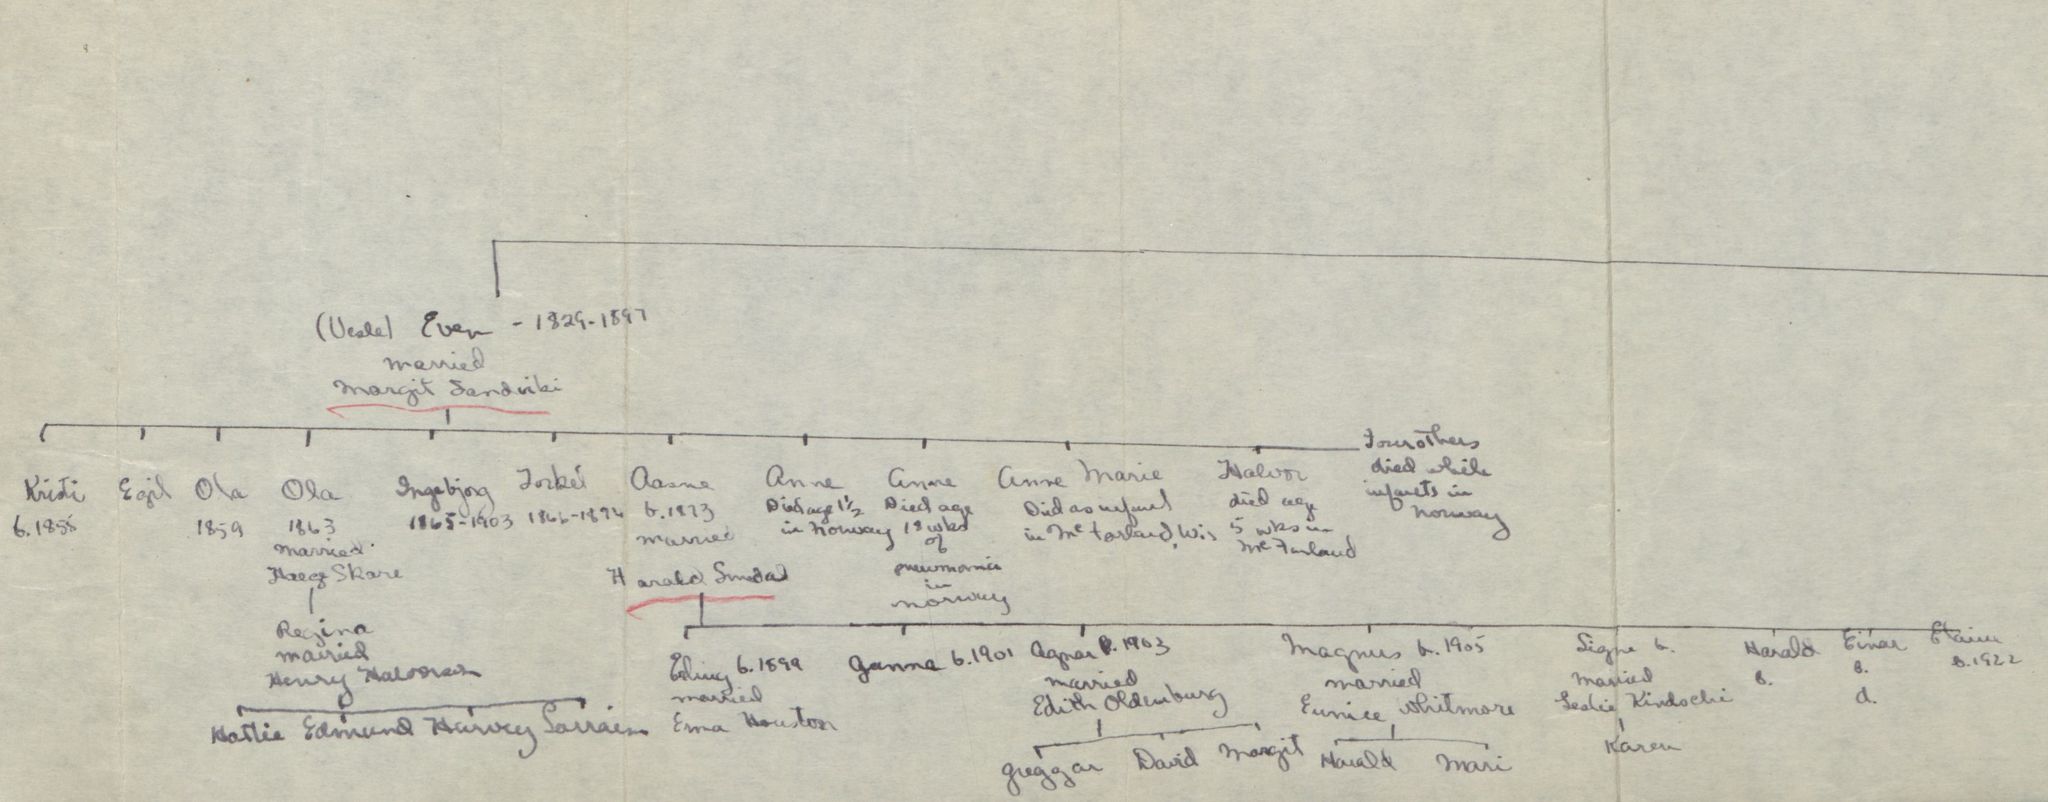 (Vesle) Even - 1829-1897
married
Margit Sandviki
Kristi
b. 1858
Egil
Ola
1859
Ola
1863
married
Haege Skare
Regina
married
Henry Halvorsen
Hattie Edmund Harvey Lorraine
Ingebjorg
1865-1903
Torkel
1866-1894
Aasne
b. 1873
married
Harald Smedal
Anne
Died age 1½
in Norway
Anne
Died age
18 wks
of
pneumonia
in
Norway
Anne Marie
Died as infant
in McFarland, Wis
Halvor
died age
5 wks in
McFarland
Four others
died while
infants in
Norway
Erling b. 1899
married
Erna Houston
Gunna b. 1901
Agnar b. 1903
married
Edith Oldenburg
Greggar David Margit
Magnus b. 1905
married
Eunice Whitmore
Harald Mari
Signe b.
married
Leslie Kindschi
Karen
Harald
b.
Einar
b.
d.
Elaine
b. 1922